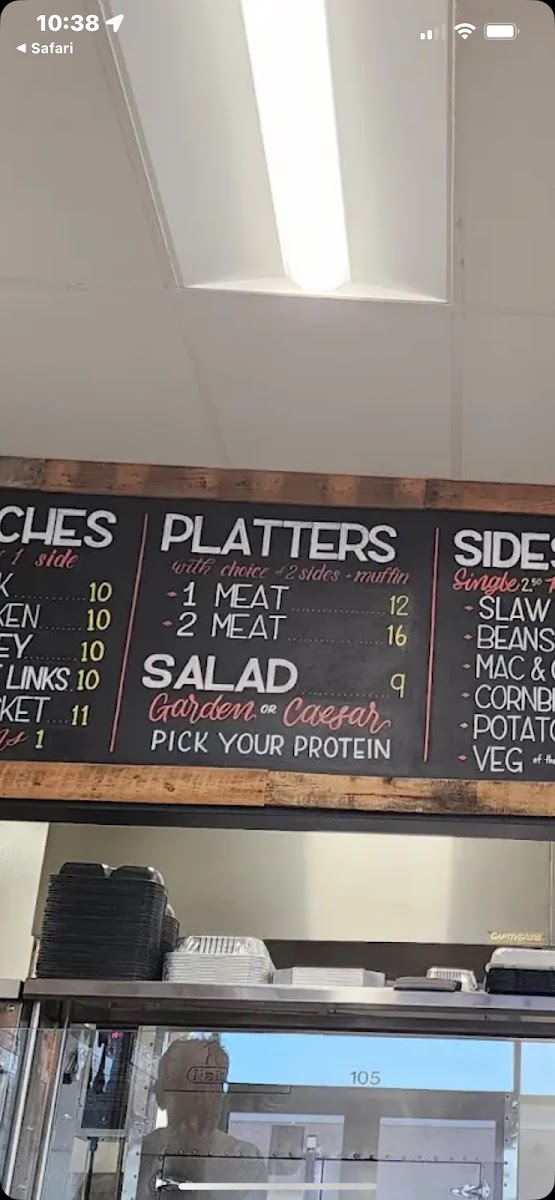 10:38
◀ Safari
CHES
1 side
K 10
KEN 10
EY 10
LINKS 10
KET 11
1
PLATTERS
with choice of 2 sides + muffin
- 1 MEAT 12
- 2 MEAT 16
SALAD 9
Garden OR Caesar
PICK YOUR PROTEIN
SIDES
Single 2.50
- SLAW
- BEANS
- MAC &
- CORNB
- POTATO
- VEG of the
CAPTIVEAIRE
105